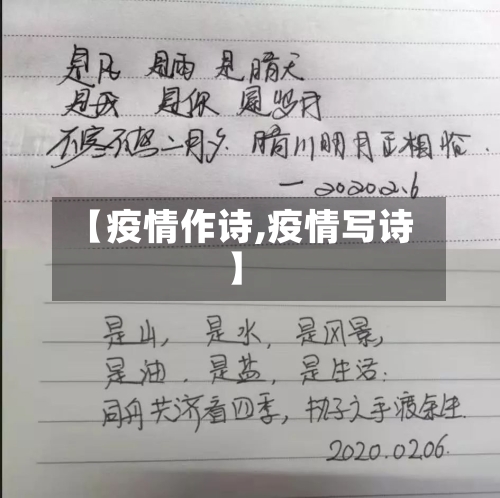 是风 是雨 是晴天
是我 是你 是岁月
不寒不热二月夕. 晴川明月正相临.
一2020.2.6
【疫情作诗,疫情写诗
】
是山, 是水, 是风景,
是油, 是盐, 是生活;
同舟共济看四季, 执子之手渡余生.
2020.02.06.